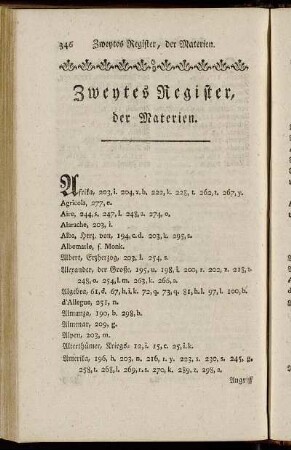 346 Zweytes Register, der Materien.
Zweytes Register,
der Materien.
Afrika, 203, i. 204, a, b. 222, k. 228, t. 262, t. 267, y.
Agricola, 277, e.
Airo, 244, s. 247, l. 248, z. 274, o.
Alarache, 203, i.
Alba, Herz. von, 194, c. d. 203, k. 295, s.
Albemarle, s. Monk.
Albert, Erzherzog, 203, l. 254, s.
Alexander, der Große, 195, u. 198, l. 200, r. 222, z. 218, s.
248, o. 254, l. m. 263, k. 266, o.
Algebra, 61, d. 67, h. i. k. 72, q. 73, q. 81, h. l. 97, l. 100, b.
d'Allegne, 251, n.
Almanza, 190, b. 298, b.
Almenar, 209, g.
Alpen, 203, m.
Alterthümer, Kriegs, 12, i. 15, c. 25, i. k.
Amerika, 196, h. 203, n. 216, r. y. 223, t. 230, z. 245, g.
258, t. 268, l. 269, r. t. 270, k. 289, z. 298, a.
Angriff